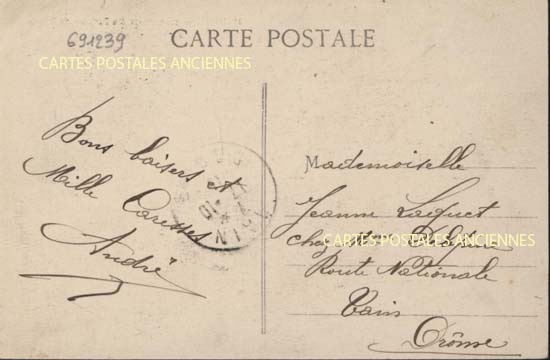 691239
CARTE POSTALE
CARTES POSTALES ANCIENNES
Bons baisers et
Mille Caresses
André
Mademoiselle
Jeanne Laguet
chez
CARTES POSTALES ANCIENNES
Route Nationale
Tain
Drôme